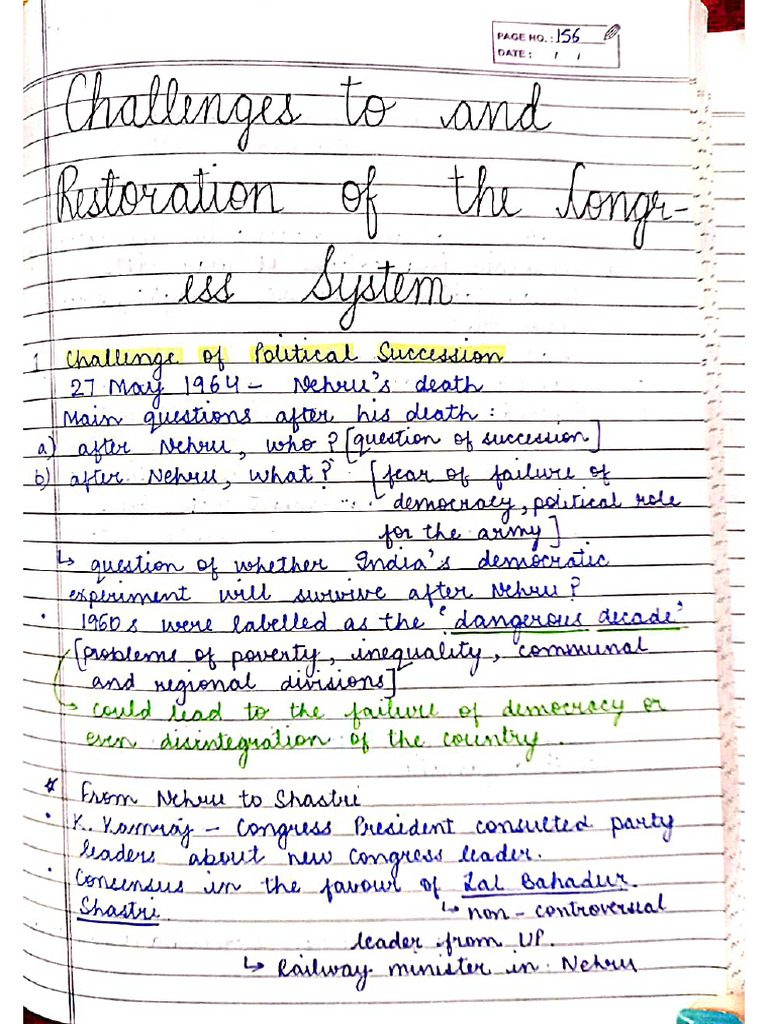 PAGE NO.: 156
DATE: / /
Challenges to and
Restoration of the Congr-
ess System
1 Challenge of Political Succession
27 May 1964 - Nehru's death
Main questions after his death :
a) after Nehru, who? [question of succession]
b) after Nehru, what? [fear of failure of
democracy, political role
for the army]
↳ question of whether India's democratic
experiment will survive after Nehru?
• 1960s were labelled as the 'dangerous decade'
[problems of poverty, inequality, communal
and regional divisions]
↳ could lead to the failure of democracy or
even disintegration of the country.
* From Nehru to Shastri
• K. Kamraj - Congress President consulted party
leaders about new Congress leader.
• Consensus in the favour of Lal Bahadur
Shastri. ↳ non-controversial
leader from UP.
↳ Railway minister in Nehru